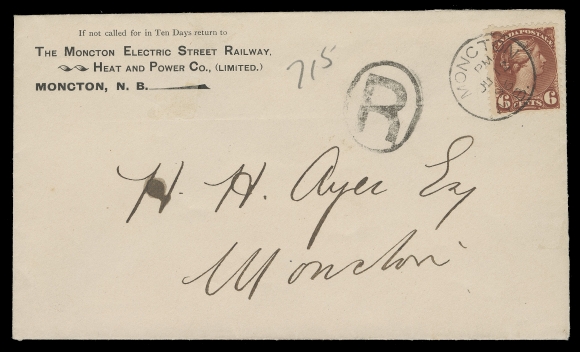 If not called for in Ten Days return to
THE MONCTON ELECTRIC STREET RAILWAY,
HEAT AND POWER CO., (LIMITED.)
MONCTON, N. B.
715
R
CANADA POSTAGE
6 CENTS 6
MONCTON
PM
H. H. Ayer Esq
Moncton